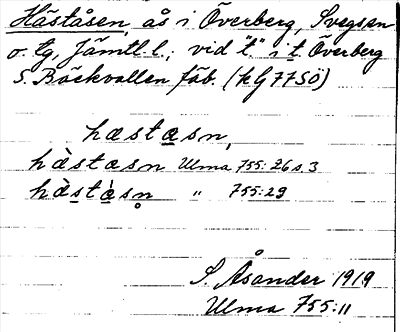 Häståsen, ås i Överberg, Svegs sn
o. tg, Jämtl. l.; vid "t" i t. Överberg
S. Böckvallen fäb. (kG 77 SÖ)
hæstasn,
hæ̀stasn Ulma 755:26 s. 3
hæ̀stàsn̥ " 755:29
S. Åsander 1919
Ulma 755:11